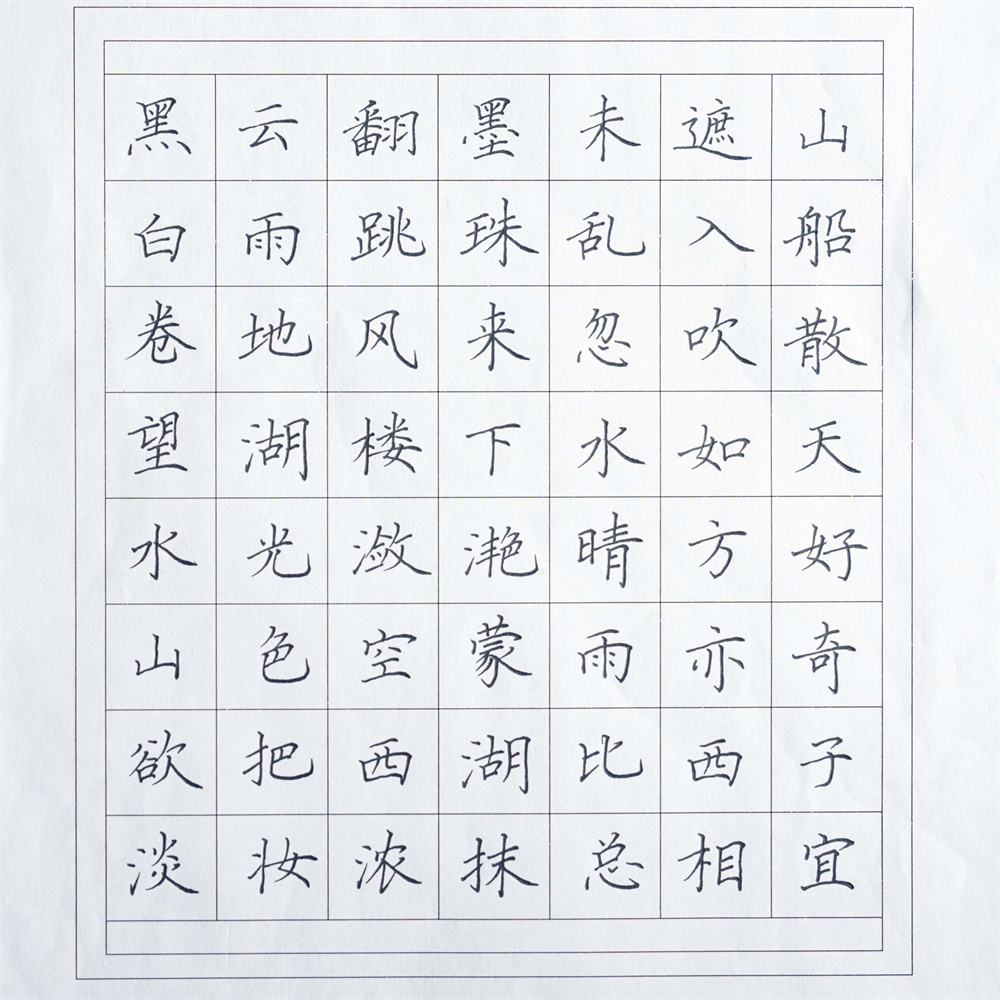 黑云翻墨未遮山
白雨跳珠乱入船
卷地风来忽吹散
望湖楼下水如天
水光潋滟晴方好
山色空蒙雨亦奇
欲把西湖比西子
淡妆浓抹总相宜